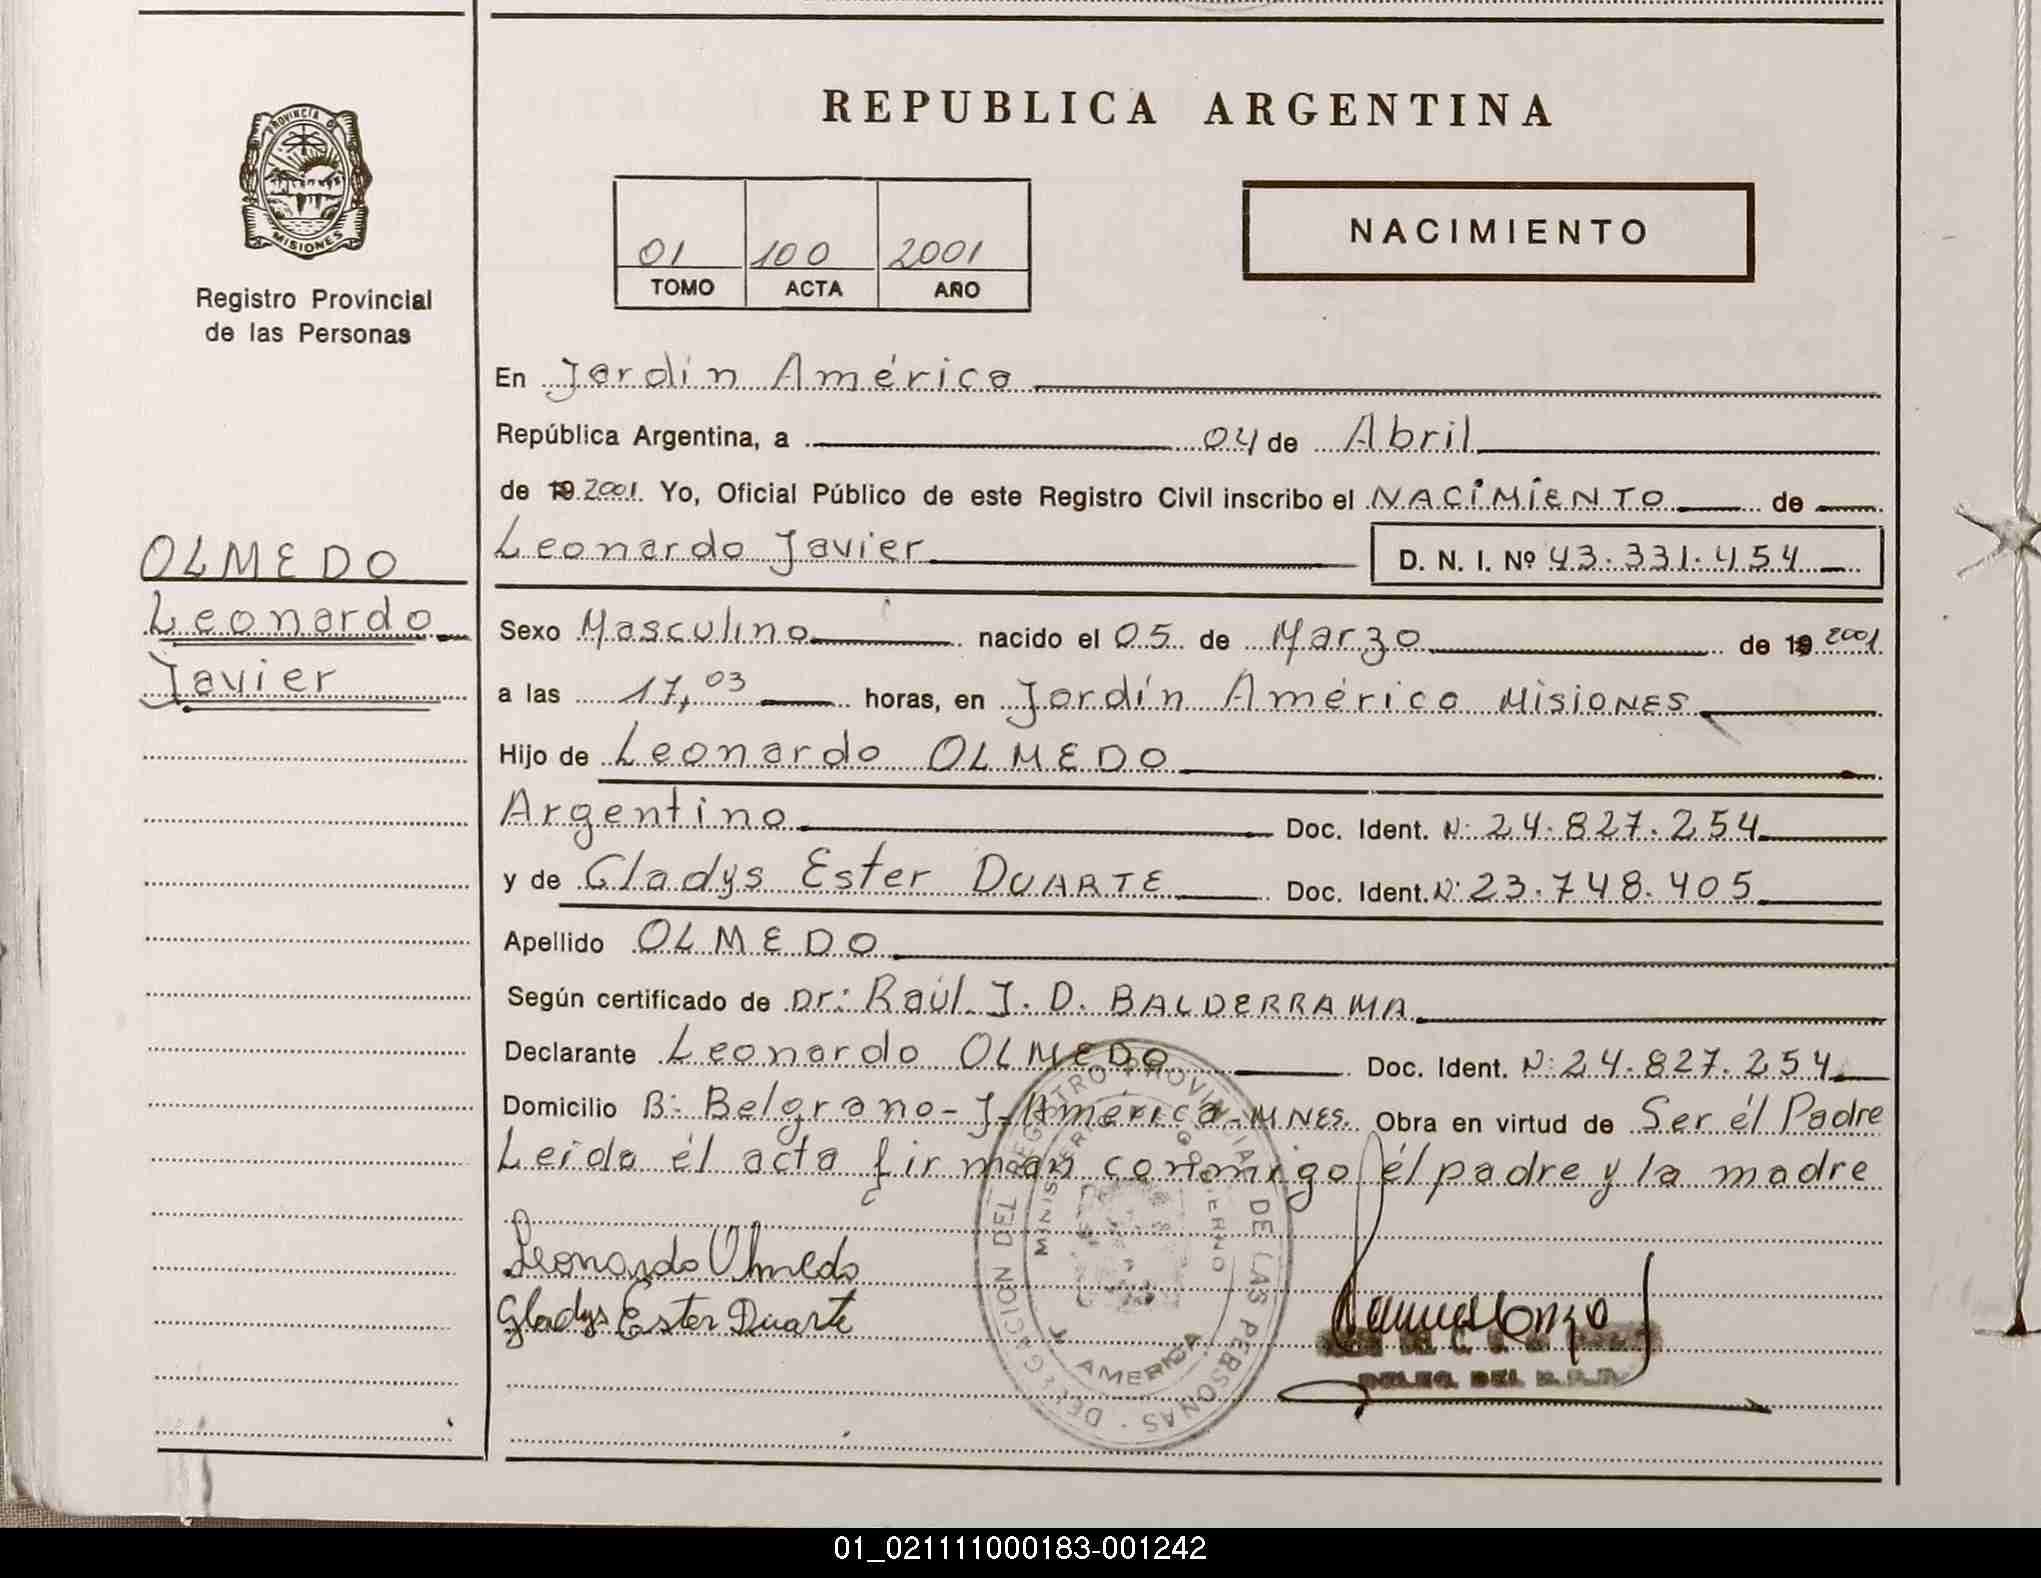 REPUBLICA ARGENTINA
PROVINCIA DE
MISIONES
Registro Provincial
de las Personas
01 100 2001
TOMO ACTA AÑO
NACIMIENTO
En Jardín América
República Argentina, a 04 de Abril
de 19 2001 Yo, Oficial Público de este Registro Civil inscribo el NACIMIENTO de
Leonardo Javier D. N. I. Nº 43.331.454
OLMEDO
Leonardo
Javier
Sexo Masculino nacido el 05 de Marzo de 19 2001
a las 17,03 horas, en Jardín América MISIONES
Hijo de Leonardo OLMEDO
Argentino Doc. Ident. N: 24.827.254
y de Gladys Ester DUARTE Doc. Ident. N: 23.748.405
Apellido OLMEDO
Según certificado de Dr: Raúl J. D. BALDERRAMA
Declarante Leonardo OLMEDO Doc. Ident. N: 24.827.254
Domicilio B: Belgrano - J. América - MNES. Obra en virtud de Ser él Padre
Leida él acta firman conmigo él padre y la madre
Leonardo Olmedo
Gladys Ester Duarte
DELEGACION DEL REGISTRO PROVINCIAL DE LAS PERSONAS
MINISTERIO GOBIERNO
AMERICA
DELEG. DEL R.P.P.
01_021111000183-001242